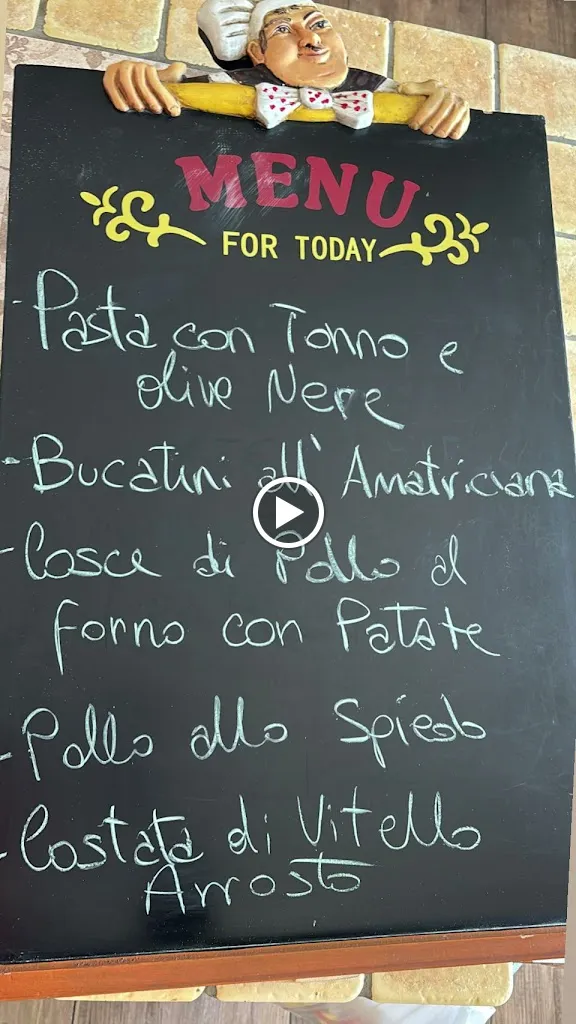 MENU
FOR TODAY
- Pasta con Tonno e
olive Nere
- Bucatini all' Amatriciana
- Cosce di Pollo al
forno con Patate
- Pollo allo Spiedo
- Costata di Vitello
Arrosto